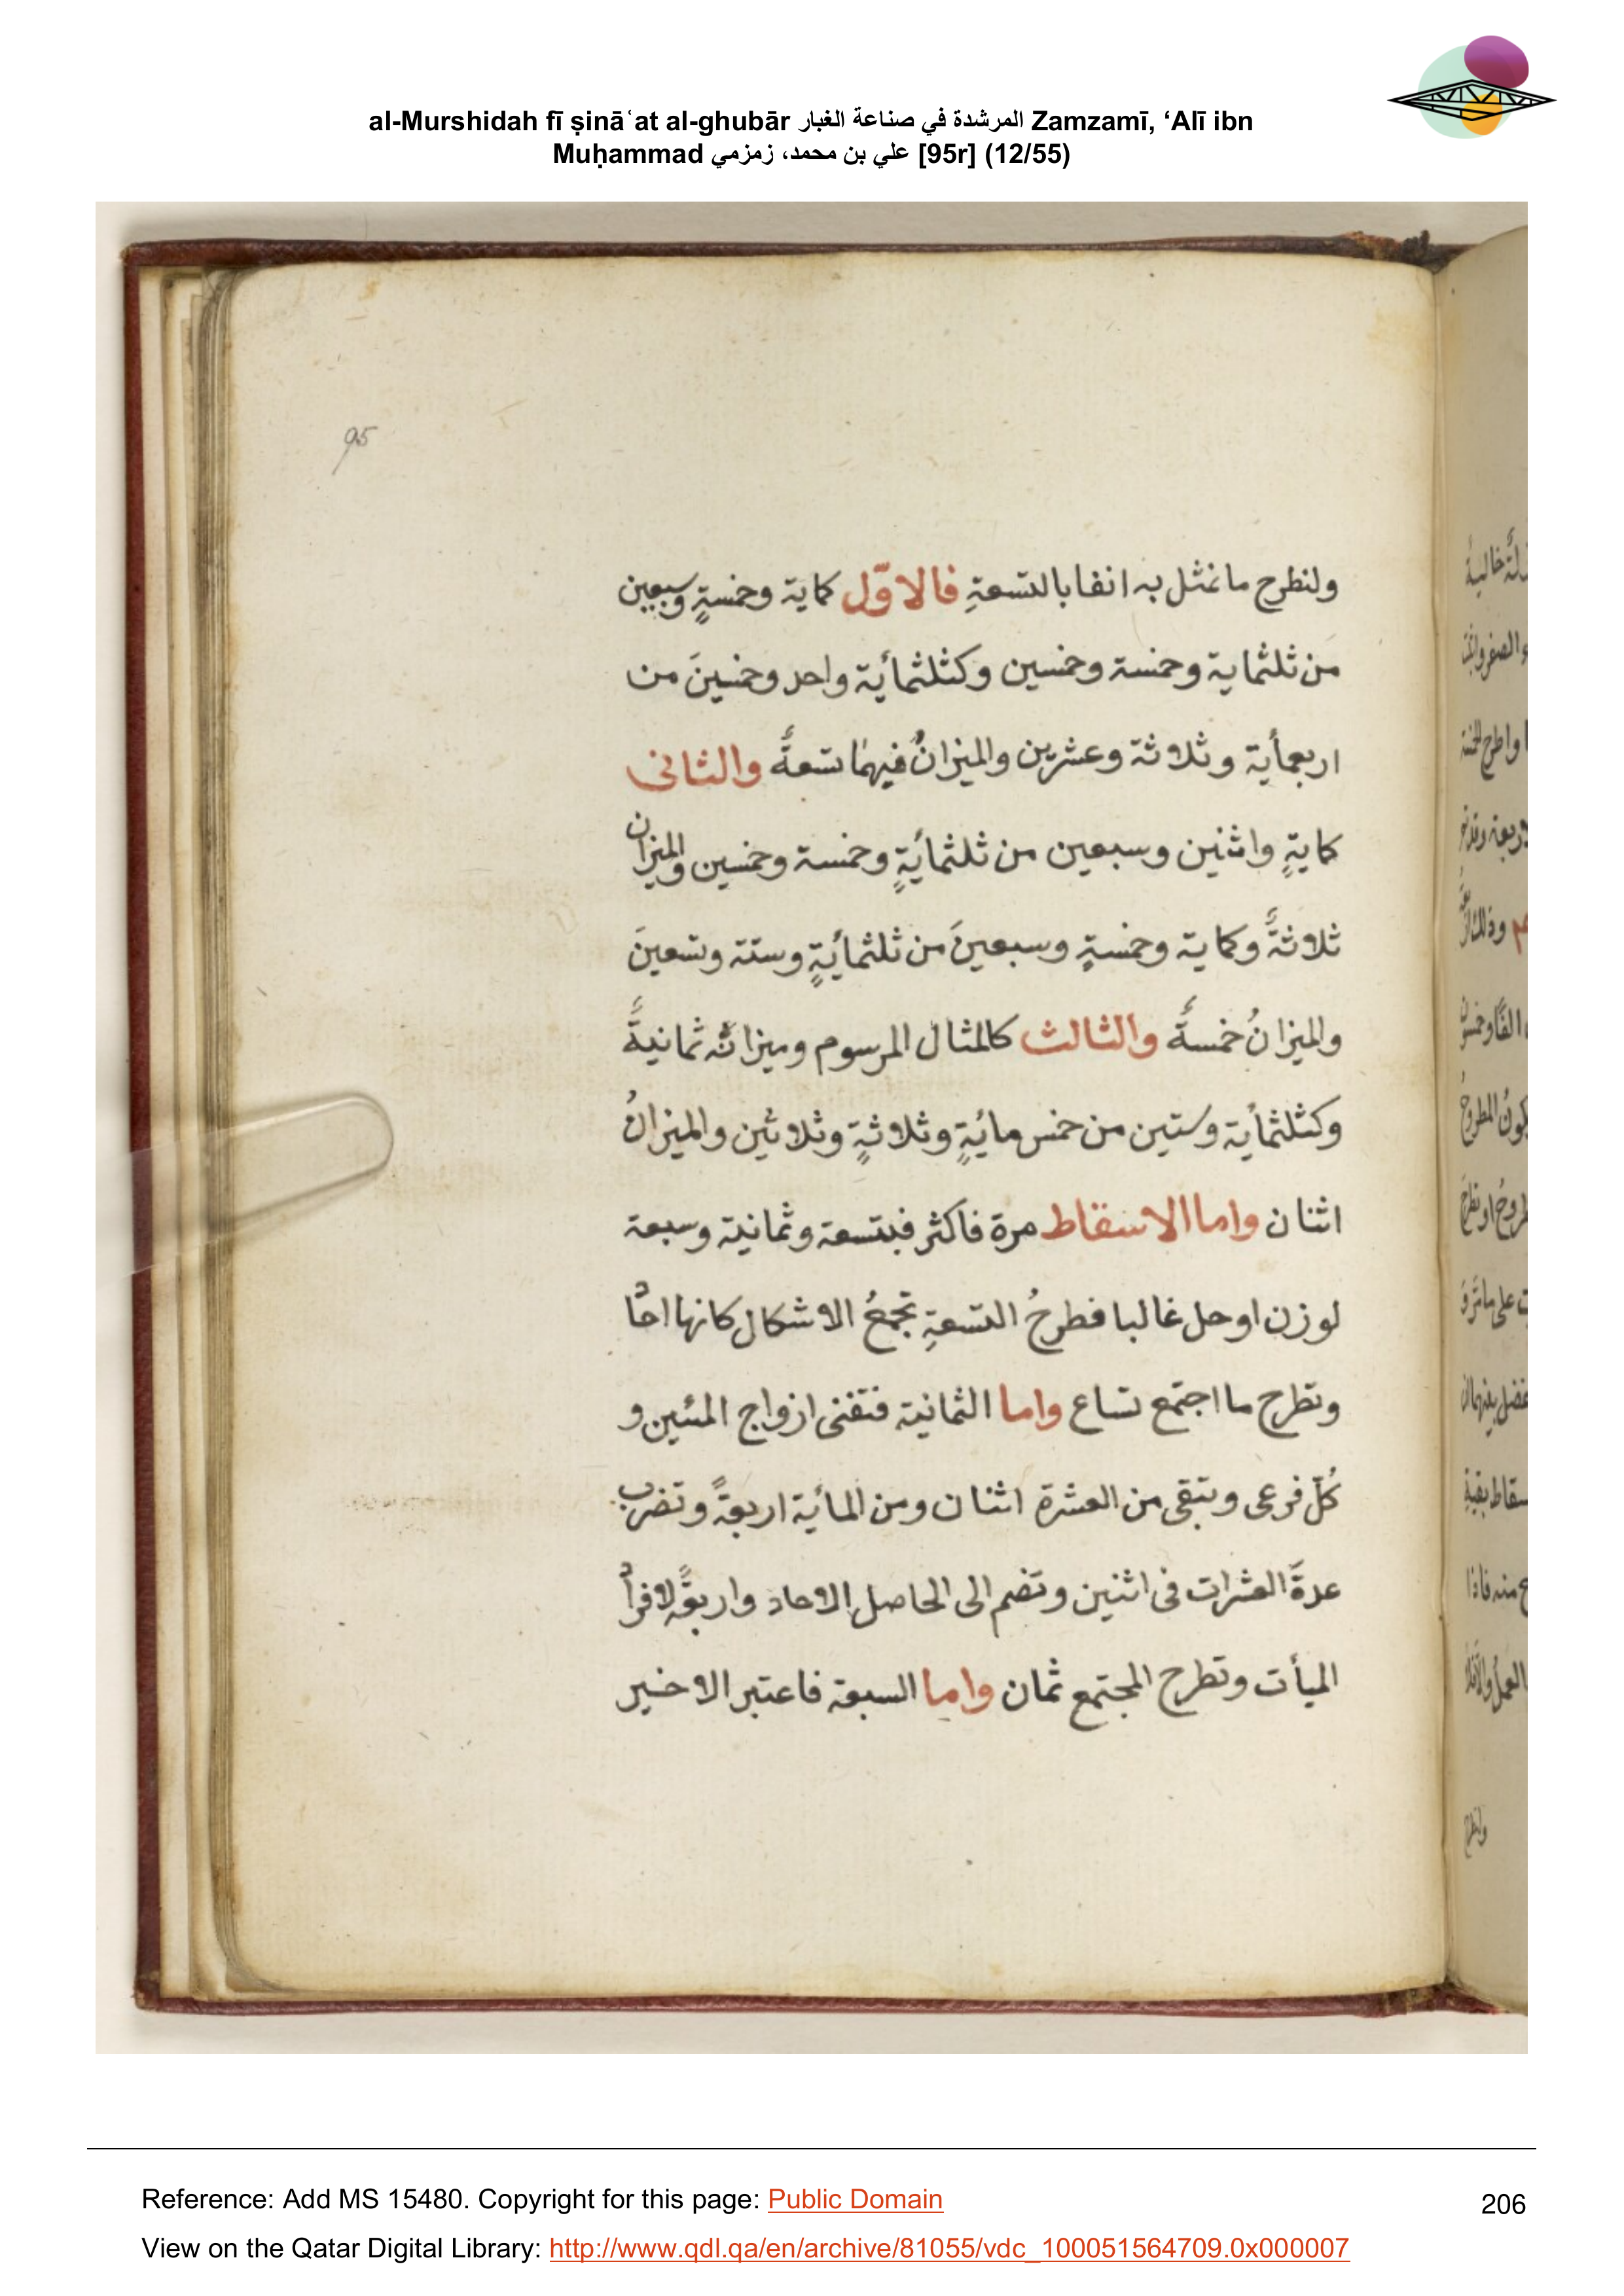 al-Murshidah fī ṣinā‘at al-ghubār المرشدة في صناعة الغبار Zamzamī, ‘Alī ibn
Muḥammad علي بن محمد، زمزمي [95r] (12/55)
95
ولنطرح ما نمثل به انفا بالتسعةِ فالاوّل كماية وخمسةٍ وسبعين
من ثلثماية وخمسة وخمسين وكثلثمأية واحد وخمسينَ من
اربعمأية وثلاثة وعشرين والميزانُ فيهما تسعةً والثانى
كمايةٍ واثنين وسبعين من ثلثمأيةٍ وخمسة وخمسين والميزان
ثلاثةً وكماية وخمسةٍ وسبعينَ من ثلثمأيةٍ وستة وتسعينَ
والميزانُ خمسةً والثالث كالمثال المرسوم وميزانُه ثمانيةً
وكثلثمأية وستين من خمس مائيةٍ وثلاثةٍ وثلاثين والميزانُ
اثنان واما الاسقاط مرة فاكثر فبتسعة وثمانية وسبعة
لوزن اوحل غالبا فطرحُ التسعةِ تجمعُ الاشكال كانها احاً
وتطرح ما اجتمع تساع واما الثمانية فتفنى ازواج المئين و
كُلّ فرعى ويبقى من العشرة اثنان ومن المأية اربعةً وتضرب
عدةَ العشرات فى اثنين وتضم الى الحاصل الاحاد واربعةً لافرأ
الميأت وتطرح المجتمع ثمان واما السبعة فاعتبر الاخير
Reference: Add MS 15480. Copyright for this page: Public Domain
206
View on the Qatar Digital Library: http://www.qdl.qa/en/archive/81055/vdc_100051564709.0x000007